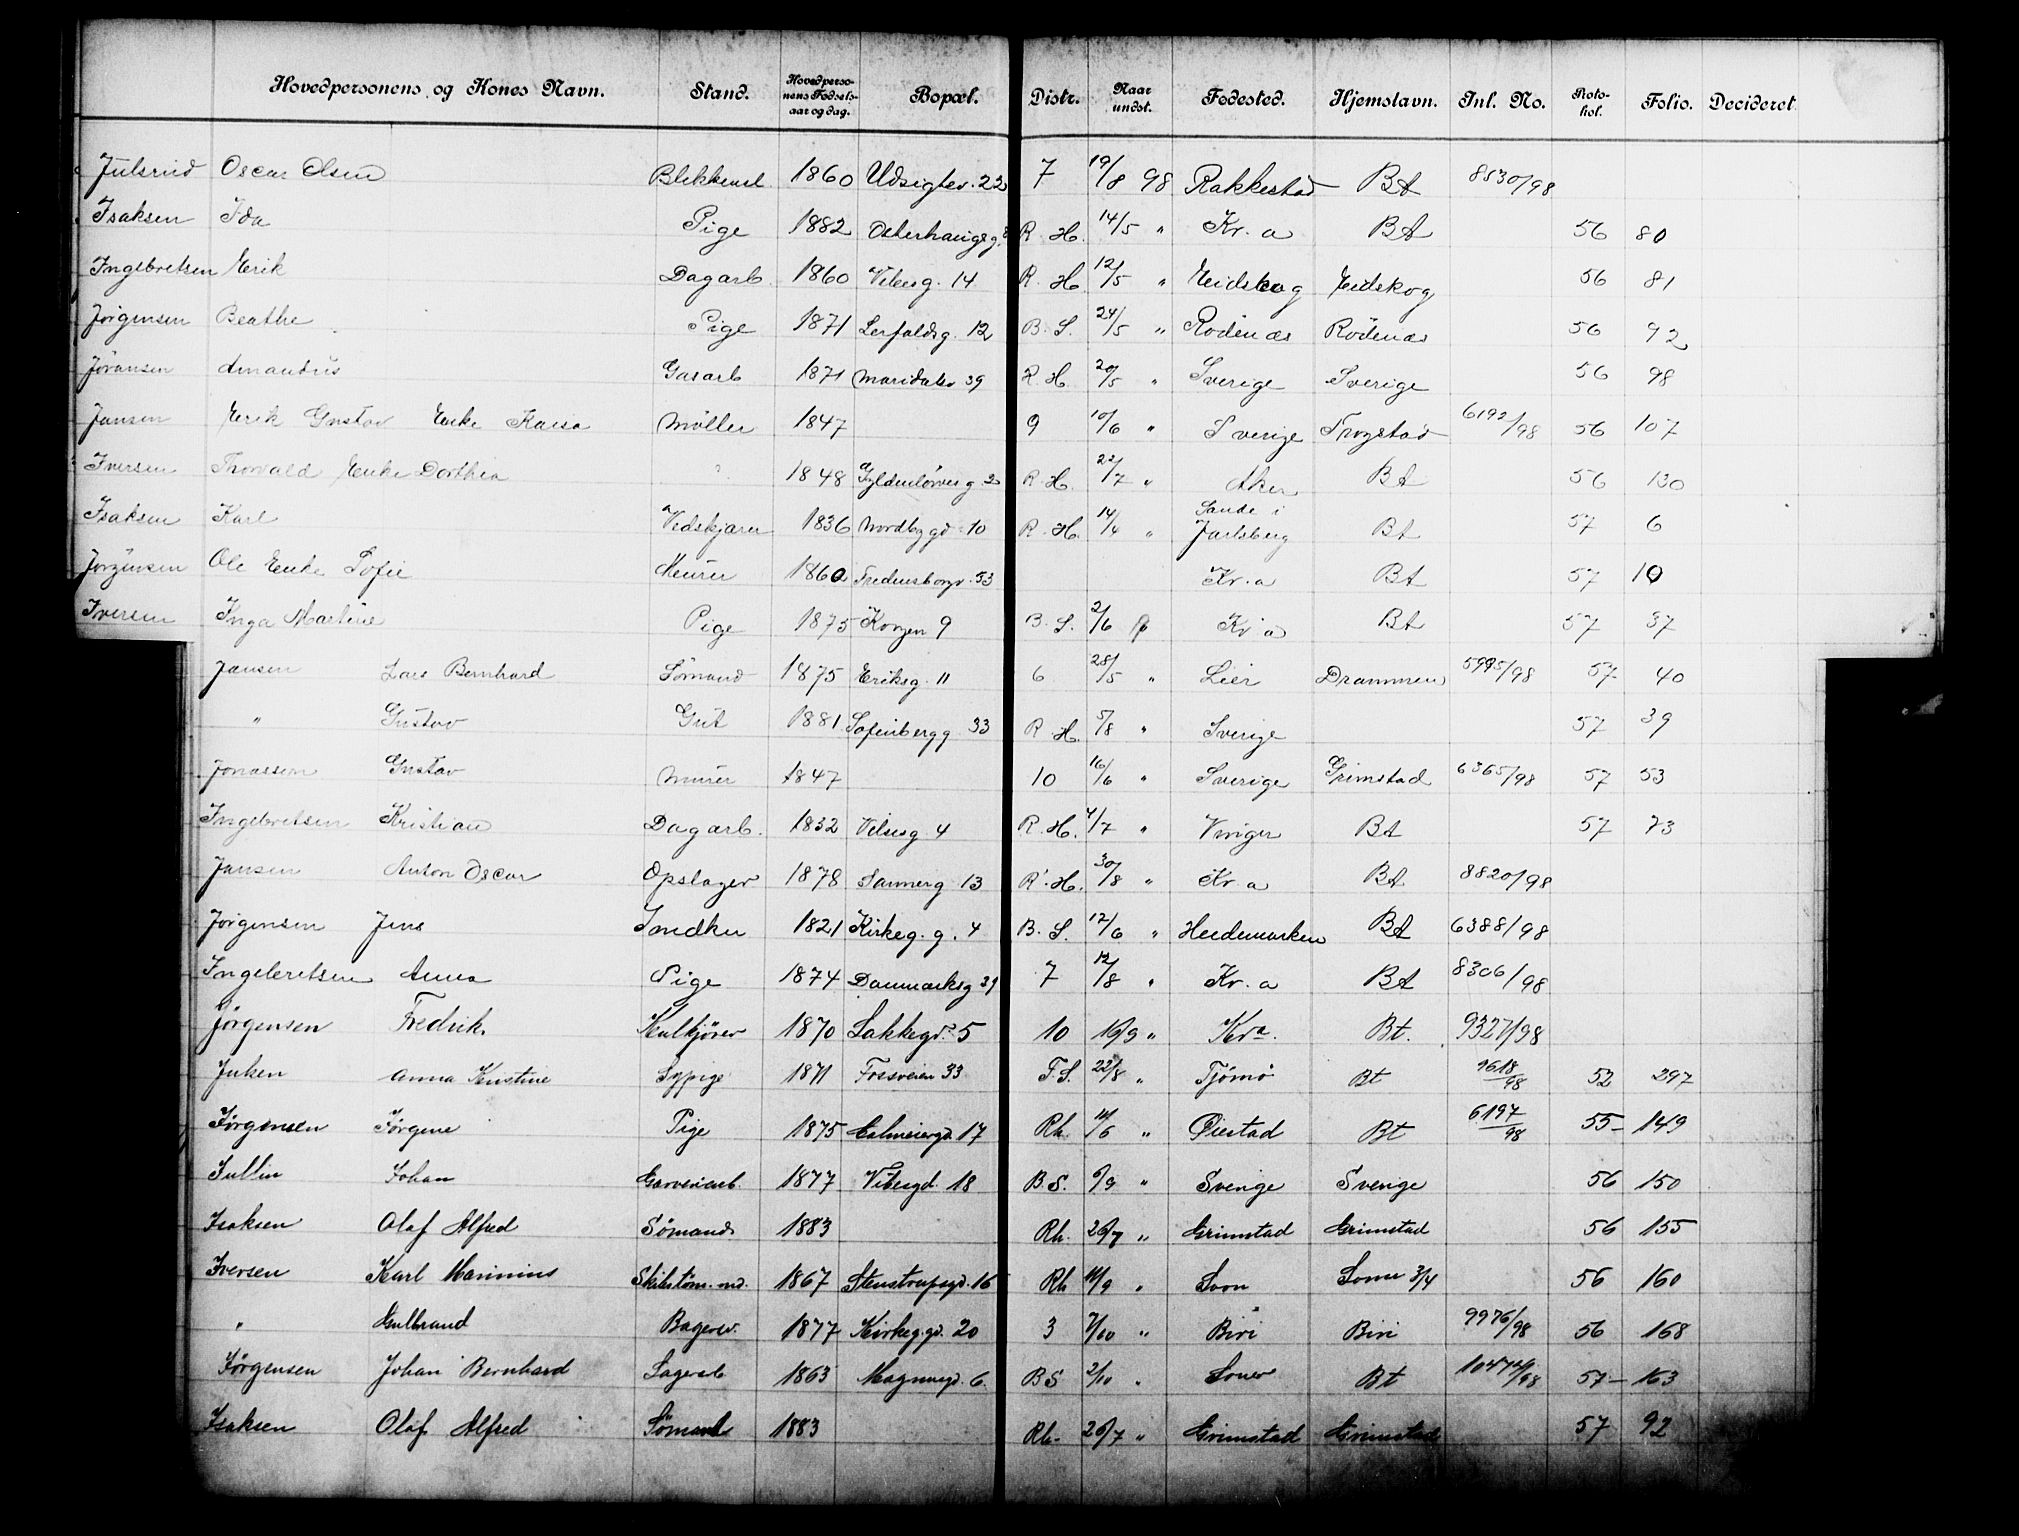 Hovedpersonens og Kones Navn. Stand. Hovedperso-nens Fødsels-aar og dag. Bopæl. Distr. Naar undst. Fødested. Hjemstavn. Inl. No. Proto-kol. Folio. Decideret
Julsrud Oscar Olsen 1860 Udsigtsv. 22 7 19/8 98 Rakkestad Bt 8530/98
Isaksen Ida Pige 1882 Osterhausg. R. H. 14/5 " Kr. a Bt 56 80
Ingebretsen Erik Dagarb 1860 Vibesg. 14 R. H. 12/5 " Eidskog Eidskog 56 81
Jørgensen Beathe Pige 1871 Lerfaldsg. 12 B. S. 24/5 " Rødenæs Rødenæs 56 92
Jøransen Amandus Gasarb 1871 Maridalsv 39 R. H. 20/5 " Sverige Sverige 56 98
Jansen Erik Gustav Enke Kaisa Møller 1847 9 10/6 " Sverige Trøgstad 6192/98 56 107
Iversen Thorvald Enke Dorthea 1848 Gyldenløvesg 2 R. H. 22/7 " Aker Bt 56 130
Isaksen Karl Vedskjærer 1836 Nordbygd. 10 R. H. 14/4 " Sande i Jarlsberg Bt 57 6
Jørgensen Ole Enke Sofie Murer 1860 Fredensborgv. 53 Kr. a Bt 57 10
Iversen Inga Martine Pige 1875 Korgen 9 B. S. 2/6 Kr a Bt 57 37
Jansen Lars Bernhard Sømand 1875 Eriksg. 11 6 28/5 " Lier Drammen 5995/98 57 40
" Gustav Gut 1881 Sofienbergg 33 R. H. 5/8 " Sverige 57 39
Jonassen Gustav Murer 1847 10 16/6 " Sverige Grimstad 6365/98 57 53
Ingebretsen Kristian Dagarb. 1832 Vibesg 4 R. H. 4/7 " Vinger Bt 57 73
Jansen Anton Oscar Opslager 1878 Sannerg. 13 R. H. 30/8 " Kr. a Bt 8820/98
Jørgensen Jens 1821 Kirkeg. g. 4 B. S. 17/6 " Hedemarken Bt 6388/98
Ingebretsen Anna Pige 1874 Danmarksg 39 7 12/8 " Kr. a Bt 8306/98
Jørgensen Fredrik Kulkjører 1870 Lakkegd. 5 10 10/9 " Kra. Bt. 9327/98
Anna Kristine Sypige 1871 Fossveien 33 F. S. 22/8 " Tjømø Bt 9618/98 52 297
Jørgensen Jørgine Pige 1875 Calmeiergd. 17 Rh. 11/6 " Øiestad Bt 6197/98 55 149
Jullin Johan Garveriarb. 1877 Vibesgd. 18 B.S. 6/9 " Sverige Sverige 56 150
Isaksen Olaf Alfred Sømand. 1883 Rh. 26/7 " Grimstad Grimstad 56 155
Iversen Karl Marinius 1867 Stenstrupsgd. 16 Rh 11/9 " 56 160
" Gulbrand Bagersv. 1877 Kirkeg.gd. 20 3 7/10 " Biri Biri 9976/98 56 168
Jørgensen Johan Bernhard Lagerarb 1863 Magnusgd. 6. BS 2/10 " Bt 57 163
Isaksen Olaf Alfred Sømand 1883 Rh. 26/7 " Grimstad Grimstad 57 92